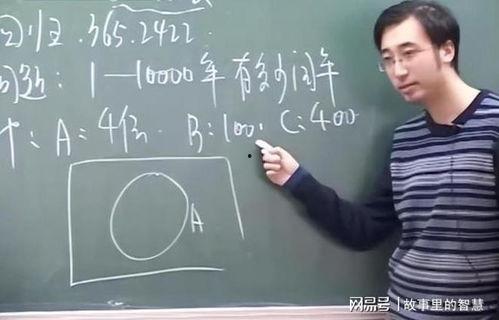 365.2422
问题：1—10000年有多少闰年
A：4倍． B：100． C：400
A
网易号 | 故事里的智慧